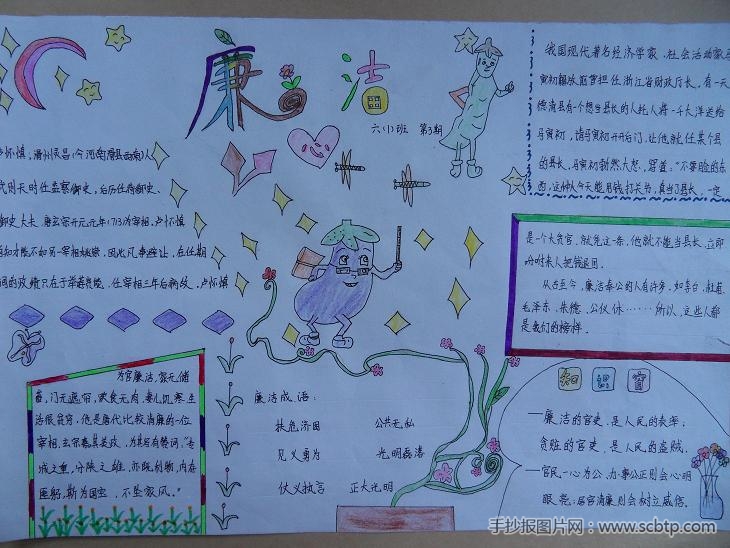 廉洁
六(1)班 第3期
卢怀慎,滑州灵昌(今河南滑县西南)人
武则天时任监察御史,后历任侍御史、
御史大夫。唐玄宗开元元年(713)为宰相,卢怀慎
自知才能不如另一宰相姚崇,因此凡事避让,在任期
间的政绩只在于荐举贤能。任宰相三年后病故,卢怀慎
为官廉洁,家无储
蓄,门无遮帘,饮食无肉,妻儿饥寒,生
活很贫穷,他是唐代比较清廉的一位
宰相。玄宗嘉其美政,为其写有赞词,"专
城之重,分陕之雄,亦既利物,内存
匪躬,斯为国宝,不坠家风。"
廉洁成语:
扶危济困 公共无私
见义勇为 光明磊落
仗义执言 正大光明
我国现代著名经济学家、社会活动家马
寅初解放前曾担任浙江省财政厅长,有一天
德清县有一个想当县长的人托人将一千大洋送给
马寅初,请马寅初开开后门,让他就任某个县
的县长,马寅初勃然大怒,骂道:"不要脸的东
西,这种人今天能用钱打关节,真当了县长,一定
是一个大贪官,就凭这一条,他就不能当县长,立即
吩咐来人把钱退回。
从古至今,廉洁奉公的人有许多,如李白、杜甫、
毛泽东、朱德、公仪休……所以,这些人都
是我们的榜样。
知识窗
—廉洁的官吏,是人民的表率;
贪赃的官吏,是人民的盗贼。
—官民一心为公,办事公正则会心明
眼亮;居官清廉则会树立威信。
手抄报图片网:www.scbtp.com